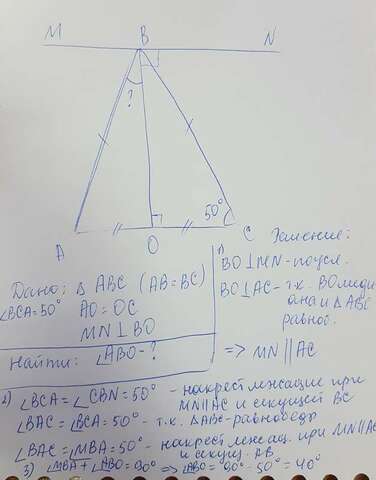 M B N
?
50°
A O C
Решение:
Дано: △ ABC (AB=BC)
∠BCA=50° AO=OC
MN⊥BO
Найти: ∠ABO-?
1)
BO⊥MN-по усл.
BO⊥AC-т.к. BO меди
ана и △ABC
равноб.
=> MN∥AC
2) ∠BCA=∠CBN=50° - накрест лежащие при
MN∥AC и секущей BC
∠BAC=∠BCA=50° - т.к. △ABC-равнобедр
∠BAC=∠MBA=50° - накрест лежащ. при MN∥AC
и секущ. AB
3) ∠MBA+∠ABO=90° => ∠ABO=90°-50°=40°